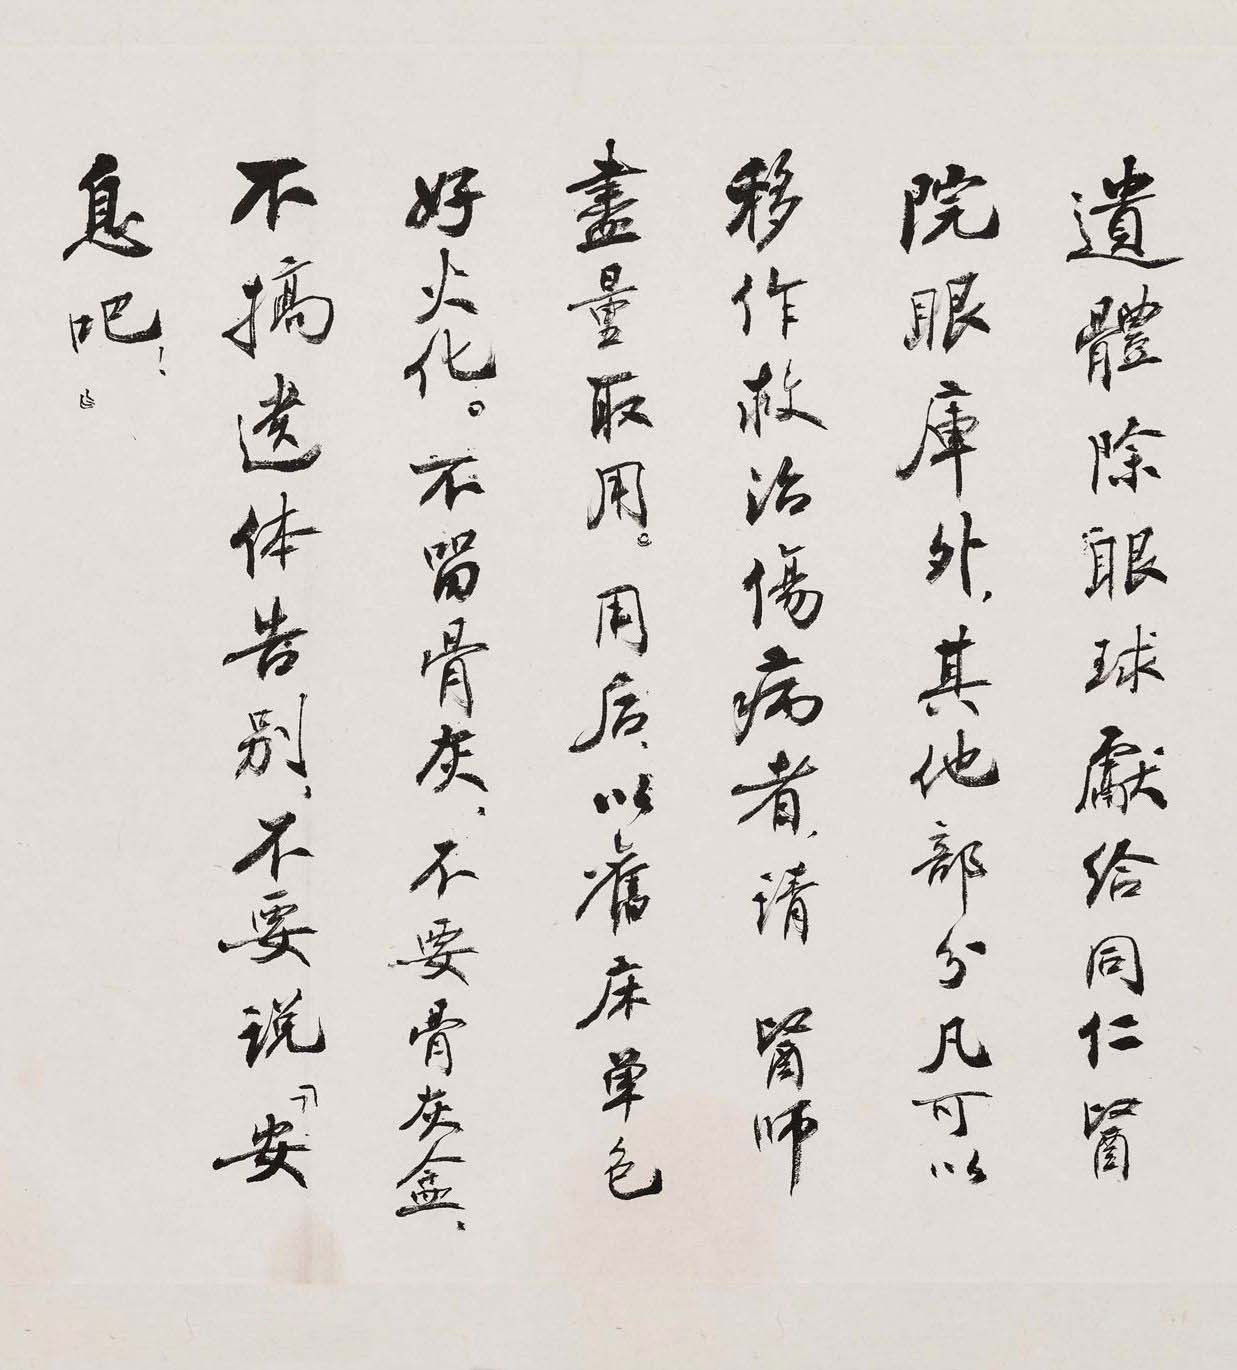 遺體除眼球獻给同仁醫
院眼庫外，其他部分凡可以
移作救治傷病者，请 醫师
盡量取用。用后，以舊床单包
好火化。不留骨灰，不要骨灰盒，
不搞遗体告别，不要说「安
息吧！」